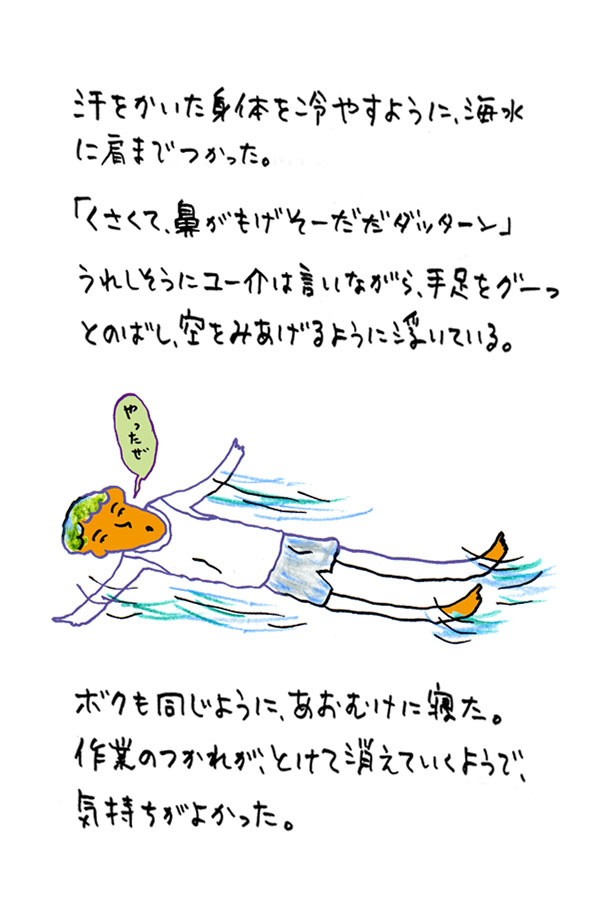 汗をかいた身体を冷やすように、海水
に肩までつかった。
「くさくて、鼻がもげそーだだダッターン」
うれしそうにユー介は言いながら、手足をグーっ
とのばし、空をみあげるように浮いている。
やったぜ
ボクも同じように、あおむけに寝た。
作業のつかれが、とけて消えていくようで、
気持ちがよかった。